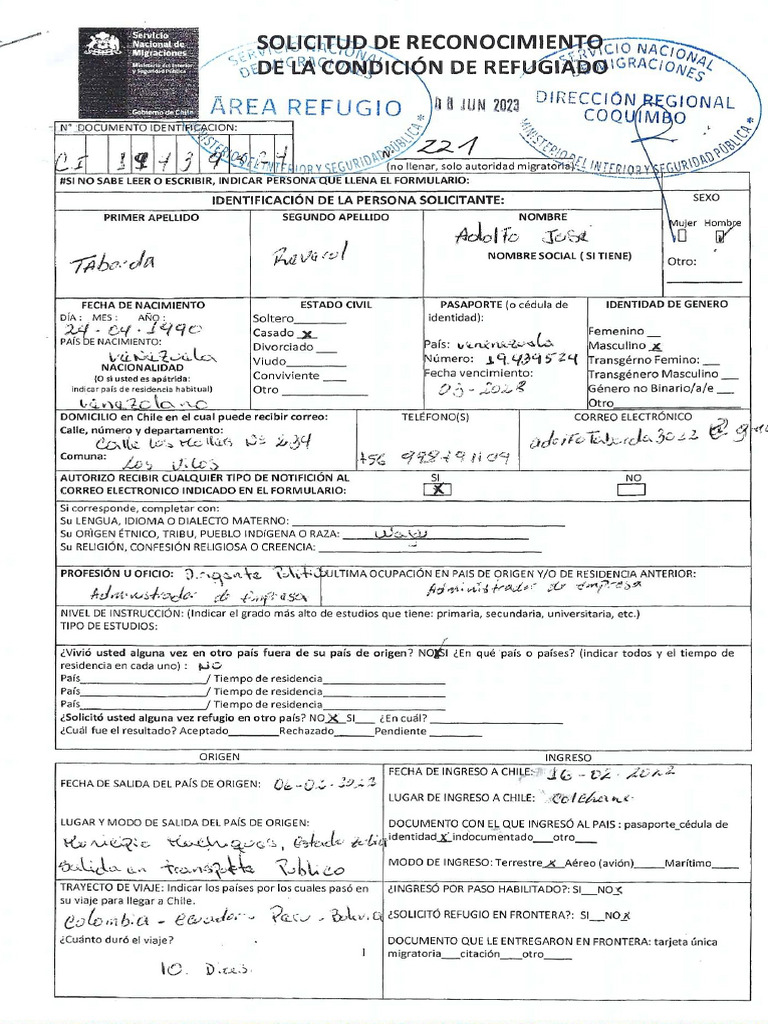 Servicio
Nacional de
Migraciones
Ministerio del Interior
y Seguridad Pública
Gobierno de Chile
SOLICITUD DE RECONOCIMIENTO
DE LA CONDICIÓN DE REFUGIADO
SERVICIO NACIONAL DE MIGRACIONES
ÁREA REFUGIO
MINISTERIO DEL INTERIOR Y SEGURIDAD PÚBLICA
08 JUN 2023
SERVICIO NACIONAL DE MIGRACIONES
DIRECCIÓN REGIONAL
COQUIMBO
MINISTERIO DEL INTERIOR Y SEGURIDAD PÚBLICA
N° DOCUMENTO IDENTIFICACION:
CI
N° 221
(no llenar, solo autoridad migratoria)
#SI NO SABE LEER O ESCRIBIR, INDICAR PERSONA QUE LLENA EL FORMULARIO:
IDENTIFICACIÓN DE LA PERSONA SOLICITANTE:
SEXO
PRIMER APELLIDO SEGUNDO APELLIDO NOMBRE
Mujer Hombre
Taborda Reverol Adolfo José
NOMBRE SOCIAL ( SI TIENE)
Otro:
FECHA DE NACIMIENTO
DÍA : MES : AÑO :
24-04-1990
PAÍS DE NACIMIENTO:
venezuela
NACIONALIDAD
(O si usted es apátrida:
indicar país de residencia habitual)
venezolano
ESTADO CIVIL
Soltero
Casado x
Divorciado
Viudo
Conviviente
Otro
PASAPORTE (o cédula de
identidad):
País: venenzuela
Número: 19.439524
Fecha vencimiento:
03-2028
IDENTIDAD DE GENERO
Femenino
Masculino x
Transgérno Femino:
Transgénero Masculino
Género no Binario/a/e
Otro
DOMICILIO en Chile en el cual puede recibir correo:
Calle, número y departamento:
Calle los Molles N° 234
Comuna: Los Vilos
TELÉFONO(S)
+56 998791109
CORREO ELECTRÓNICO
adolfoTaborda3022@
AUTORIZO RECIBIR CUALQUIER TIPO DE NOTIFICIÓN AL
CORREO ELECTRONICO INDICADO EN EL FORMULARIO:
SI
X
NO
Si corresponde, completar con:
Su LENGUA, IDIOMA O DIALECTO MATERNO:
Su ORÌGEN ÉTNICO, TRIBU, PUEBLO INDÍGENA O RAZA:
Su RELIGIÓN, CONFESIÓN RELIGIOSA O CREENCIA:
PROFESIÓN U OFICIO: Dirigente Politico
Administrador de Empresa
ULTIMA OCUPACIÓN EN PAIS DE ORIGEN Y/O DE RESIDENCIA ANTERIOR:
Administrador de Empresa
NIVEL DE INSTRUCCIÓN: (Indicar el grado más alto de estudios que tiene: primaria, secundaria, universitaria, etc.)
TIPO DE ESTUDIOS:
¿Vivió usted alguna vez en otro país fuera de su país de origen? NO X SI ¿En qué país o países? (indicar todos y el tiempo de
residencia en cada uno) : NO
País / Tiempo de residencia
País / Tiempo de residencia
País / Tiempo de residencia
¿Solicitó usted alguna vez refugio en otro país? NO X SI ¿En cuál?
¿Cuál fue el resultado? Aceptado Rechazado Pendiente
ORIGEN
FECHA DE SALIDA DEL PAÍS DE ORIGEN:
LUGAR Y MODO DE SALIDA DEL PAÍS DE ORIGEN:
Estado Zulia
Salida en transporte Publico
TRAYECTO DE VIAJE: Indicar los países por los cuales pasó en
su viaje para llegar a Chile.
Colombia - Ecuador - Peru - Bolivia
¿Cuánto duró el viaje?
10. Dias.
INGRESO
FECHA DE INGRESO A CHILE: 16-02-2022
LUGAR DE INGRESO A CHILE: Colchane
DOCUMENTO CON EL QUE INGRESÓ AL PAIS : pasaporte cédula de
identidad x indocumentado otro
MODO DE INGRESO: Terrestre x Aéreo (avión) Marítimo
¿INGRESÓ POR PASO HABILITADO?: SI NO x
¿SOLICITÓ REFUGIO EN FRONTERA?: SI NO x
DOCUMENTO QUE LE ENTREGARON EN FRONTERA: tarjeta única
migratoria citación otro
1